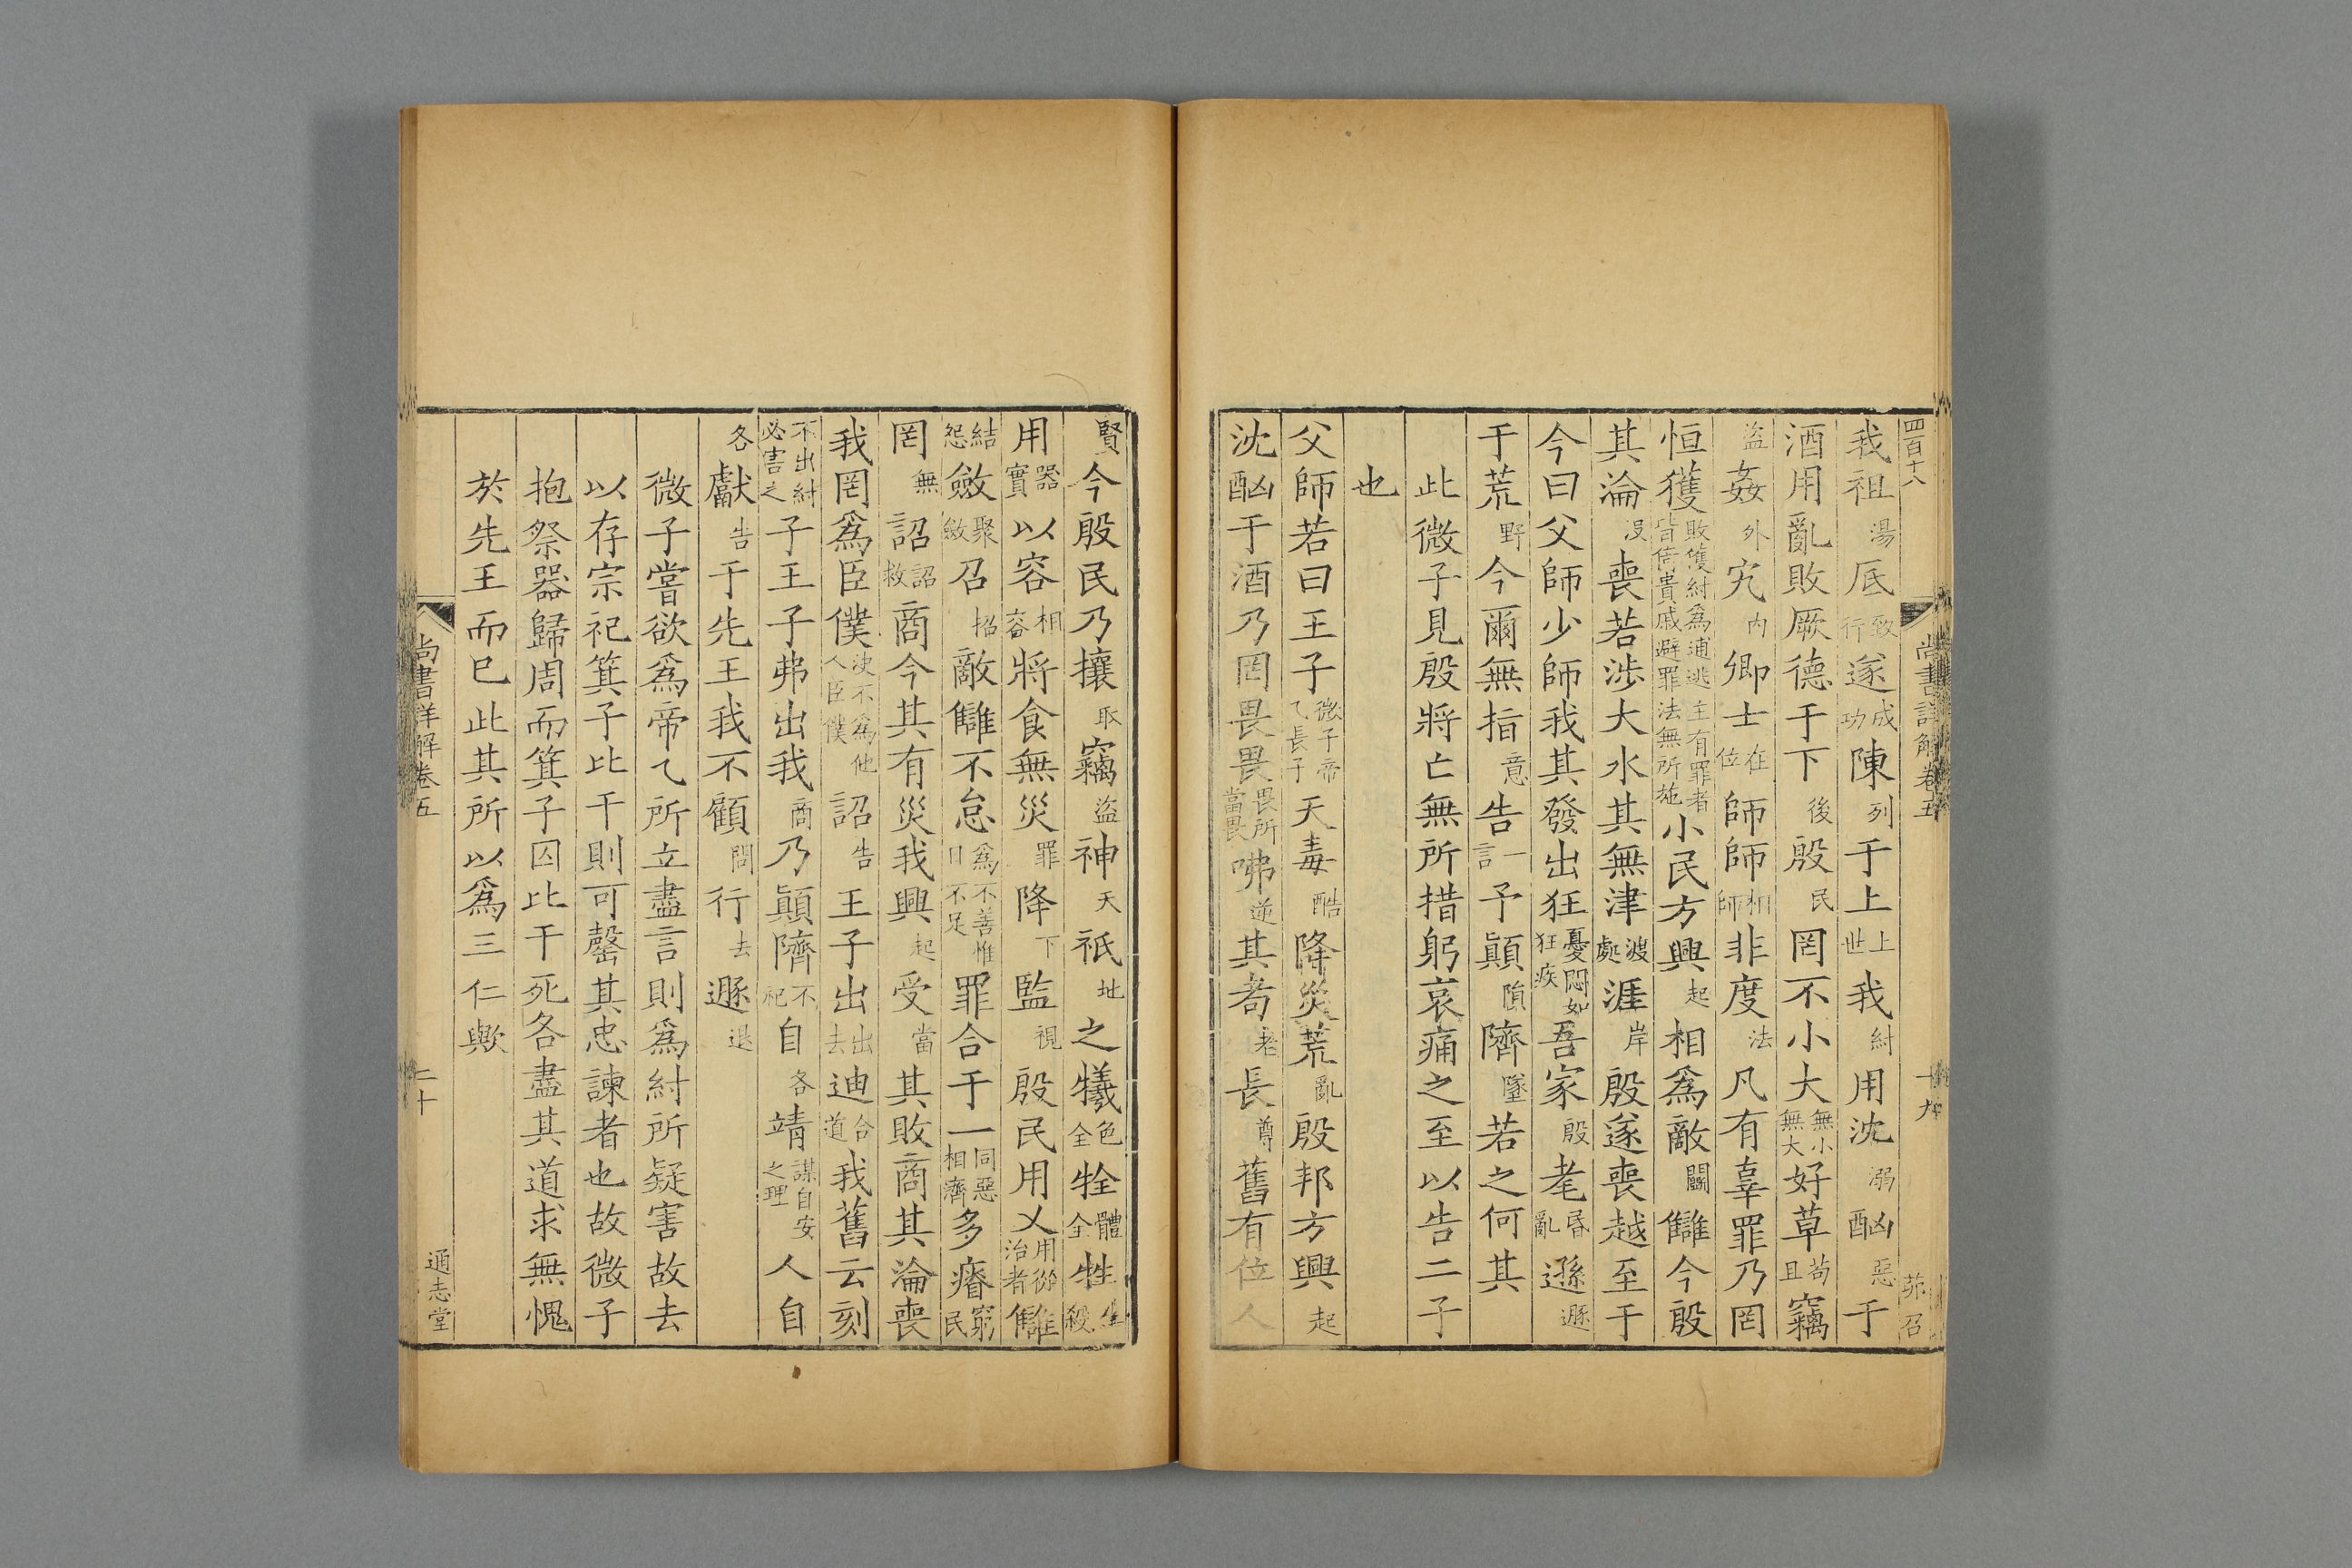 四百十八
尚書詳解卷五
十九
茆召
我祖湯厎致行遂成功陳列于上上世我紂用沈溺酗惡于
酒用亂敗厥德于下後殷民罔不小大無小無大好草苟且竊
盜姦外宄內卿士在位師師相師非度法凡有辜罪乃罔
恒獲敗獲紂爲逋逃主有罪者皆倚貴戚避罪法無所施小民方興起相爲敵鬬讎今殷
其淪沒喪若涉大水其無津渡處涯岸殷遂喪越至于
今曰父師少師我其發出狂憂悶如狂疾吾家殷耄昏亂遜遯
于荒野今爾無指意告一言予顚隕隮墜若之何其
此微子見殷將亡無所措躬哀痛之至以告二子
也
父師若曰王子微子帝乙長子天毒酷降災荒亂殷邦方興起
沈酗于酒乃罔畏畏畏所當畏咈逆其耇老長尊舊有位人
賢今殷民乃攘取竊盜神天祇地之犧色全牷體全牲殺
用器實以容相容將食無災罪降下監視殷民用乂用治者讎
結怨斂聚斂召招敵讎不怠爲不善惟日不足罪合于一同惡相濟多瘠窮民
罔無詔詔救商今其有災我興起受當其敗商其淪喪
我罔爲臣僕決不爲他人臣僕詔告王子出出去迪合道我舊云刻
不出紂必害之子王子弗出我商乃顚隮不祀自各靖謀自安之理人自
各獻告于先王我不顧問行去遯退
微子嘗欲爲帝乙所立盡言則爲紂所疑害故去
以存宗祀箕子比干則可罄其忠諫者也故微子
抱祭器歸周而箕子囚比干死各盡其道求無愧
於先王而已此其所以爲三仁歟
尚書詳解卷五
二十
通志堂